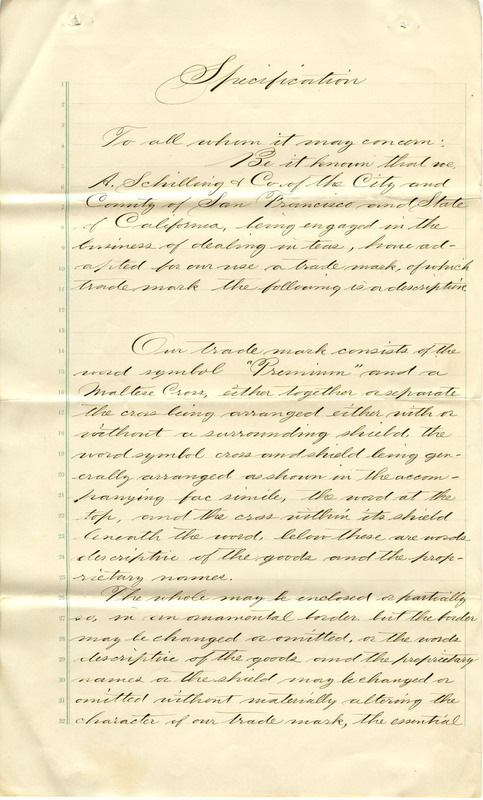 Specification
To all whom it may concern:
Be it known that we,
A. Schilling & Co. of the City and
County of San Francisco and State
of California, being engaged in the
business of dealing in teas, have ad-
opted for our use a trade mark, of which
trade mark the following is a description
Our trade mark consists of the
word symbol "Premium" and a
Maltese Cross, either together or separate
the cross being arranged either with or
without a surrounding shield, the
word symbol cross and shield being gen-
erally arranged as shown in the accom-
panying fac simile, the word at the
top, and the cross within its shield
beneath the word, below these are words
descriptive of the goods and the prop-
rietary names.
The whole may be enclosed or partially
so, in an ornamental border. but the border
may be changed or omitted, or the words
descriptive of the goods and the proprietary
names or the shield may be changed or
omitted without materially altering the
character of our trade mark, the essential